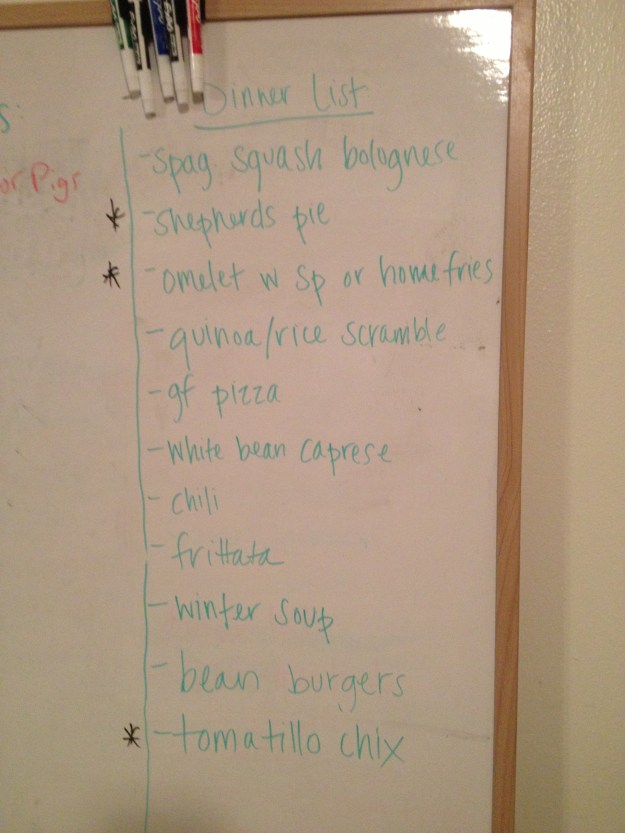 Dinner List
-spag squash bolognese
or Pigs
* -shepherds pie
* -omelet w sp or homefries
-quinoa/rice scramble
-gf pizza
-white bean caprese
-chili
-frittata
-winter soup
-bean burgers
* -tomatillo chix